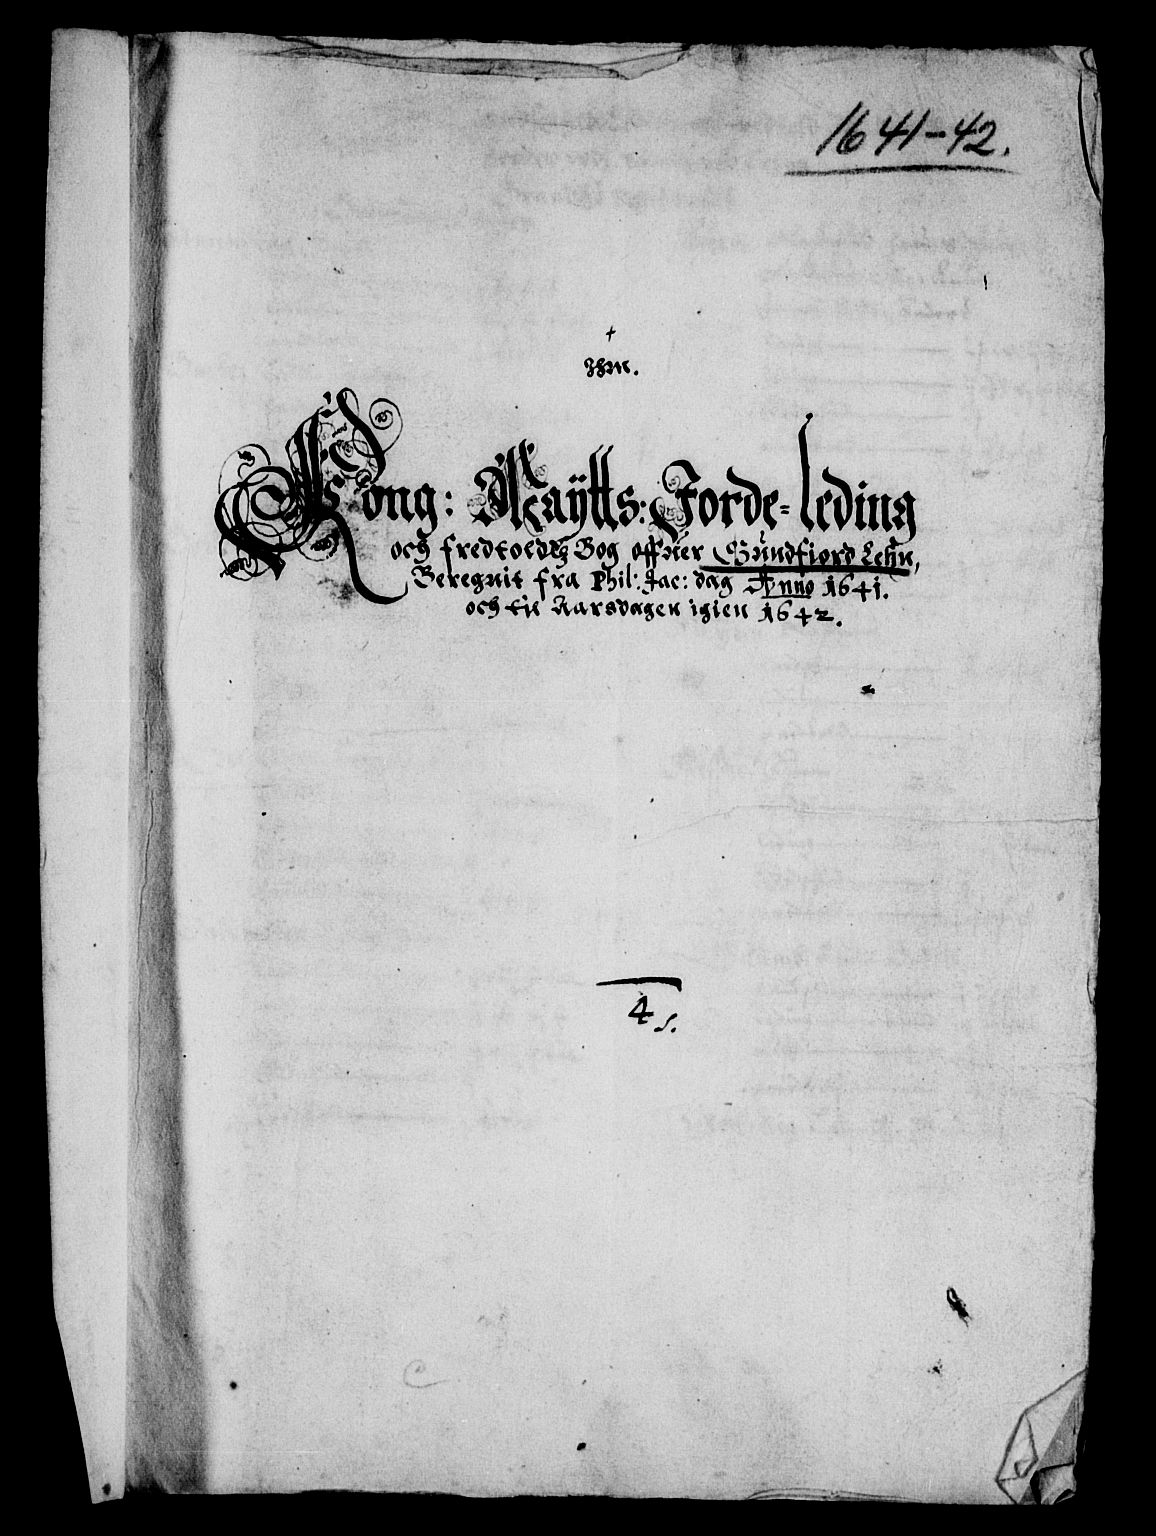 1641-42.
+
Ihm.
Kong: Maÿtts: Forde-leding
och fredtoldtz Bog offuer Sundfiord Lehn,
Beregnit fra Phil: Jac: dag Anno 1641.
och til Aarsdagen igien 1642.
4